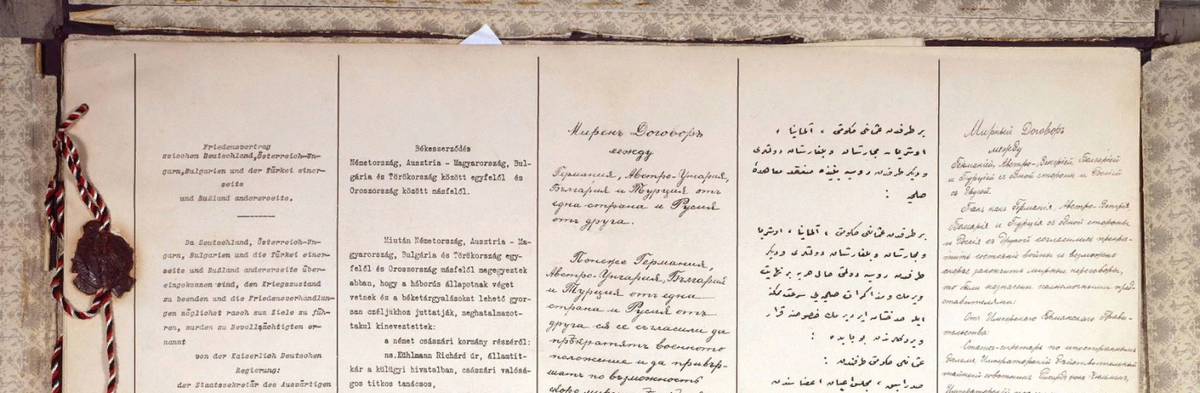 Friedensvertrag
zwischen Deutschland, Österreich-Un-
garn, Bulgarien und der Türkei einer-
seits
und Rußland andererseits.
Da Deutschland, Österreich-Un-
garn, Bulgarien und die Türkei einer-
seits und Rußland andererseits über-
eingekommen sind, den Kriegszustand
zu beenden und die Friedensverhandlun-
gen möglichst rasch zum Ziele zu füh-
ren, wurden zu Bevollmächtigten er-
nannt
von der Kaiserlich Deutschen
Regierung:
der Staatssekretär des Auswärtigen
Békeszerződés
Németország, Ausztria - Magyarország, Bul-
gária és Törökország között egyfelől és
Oroszország között másfelől.
Miután Németország, Ausztria - Ma-
gyarország, Bulgária és Törökország egy-
felől és Oroszország másfelől megegyeztek
abban, hogy a háborús állapotnak véget
vetnek és a béketárgyalásokat lehető gyor-
san céljukhoz juttatják, meghatalmazot-
takul kineveztettek:
a német császári kormány részéről:
Kühlmann Richárd dr, államtit-
kár a külügyi hivatalban, császári valósá-
gos titkos tanácsos,
Миренъ Договоръ
между
Германия, Австро-Унгария,
България и Турция отъ
една страна и Русия
отъ друга.
Понеже Германия,
Австро-Унгария, България
и Турция отъ една
страна и Русия отъ
друга сѫ се съгласили да
прѣкратятъ военното
положение и да привър-
шатъ по възможность
скоро
بر طرفدن عثمانلی حكومتی ، آلمانيا ،
اوستريا - مجارستان و بلغارستان دولتلری
وديكر طرفدن روسيه بيننده منعقد معاهدهٔ
صلحيه :
بر طرفدن عثمانلی حكومتی ، آلمانيا ، اوستريا
مجارستان و بلغارستان دولتلری وديكر
طرفدن روسيه دولتی حال حربه نهايت
ويرمك و مذاكرات صلحيه‌يی سرعت ممكنه
ايله
ويردكلرندن
عثمانلی حكومتی طرفندن :
Мирный Договоръ
между
Германіей, Австро-Венгріей, Болгаріей
и Турціей съ одной стороны и Россіей
съ другой.
Такъ какъ Германія, Австро-Венгрія,
Болгарія и Турція съ одной стороны
и Россія съ другой согласились прекра-
тить состояніе войны и возможно
скорѣе закончить мирные переговоры,
то были назначены полномочными пред-
ставителями:
Отъ Имперскаго Германскаго Прави-
тельства:
Статсъ-секретарь по иностраннымъ
дѣламъ, Императорскій Дѣйствительный
тайный совѣтникъ Рихардъ фонъ Кюльманъ,